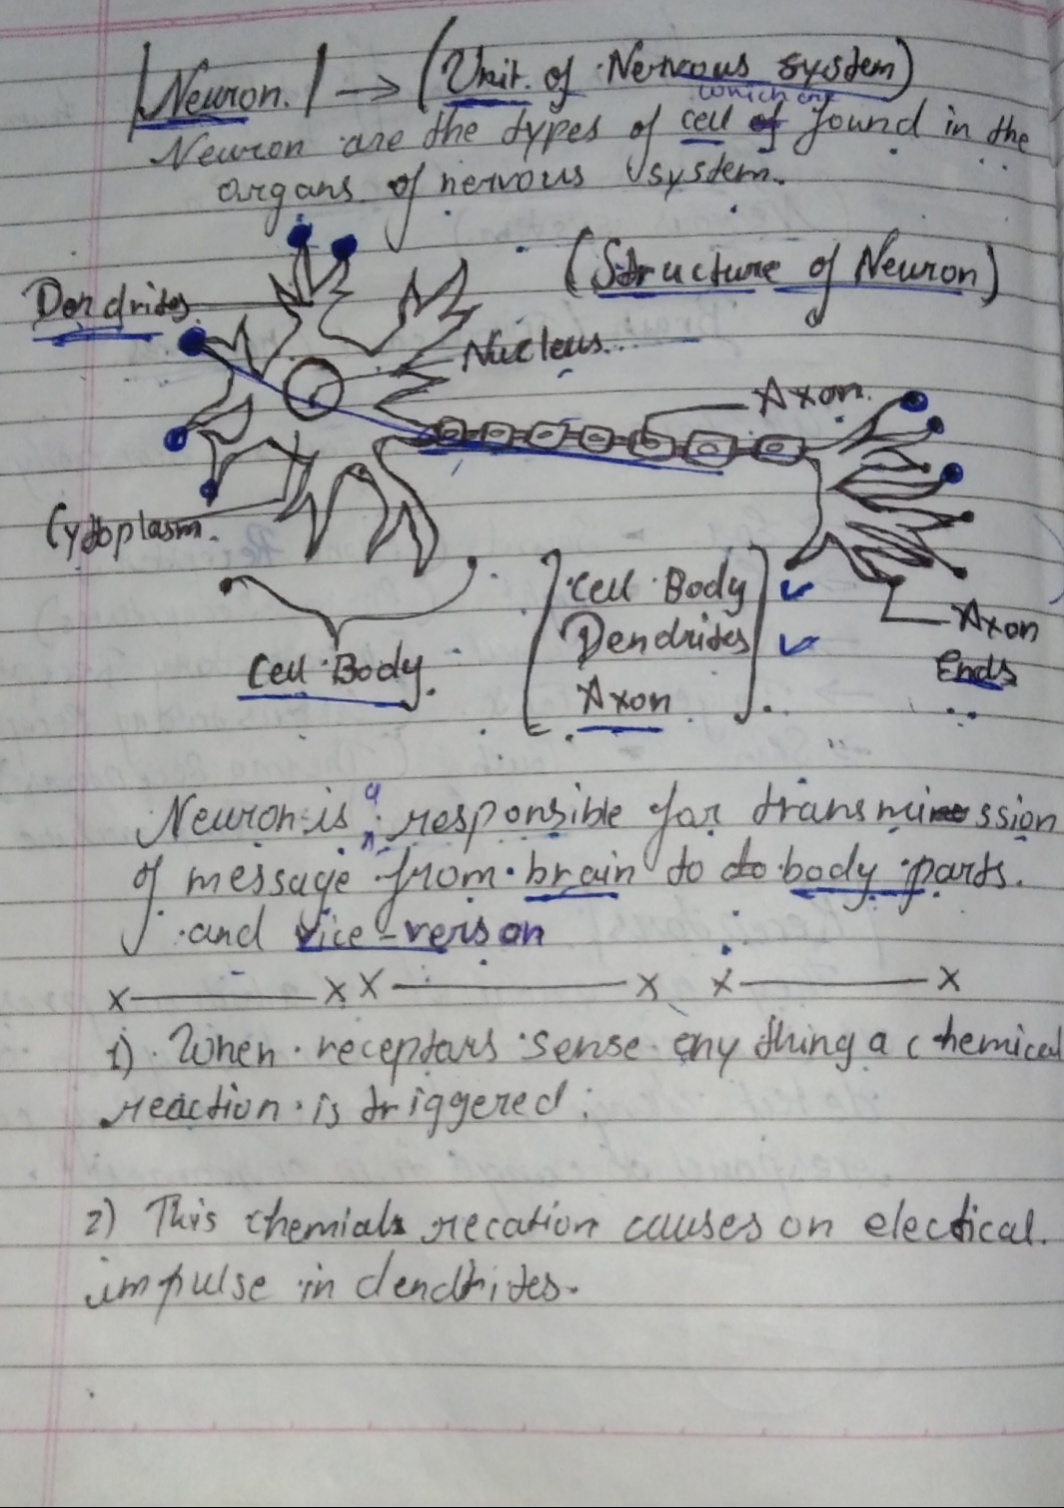 Neuron. → (Unit of Nervous system)
which are
Neuron are the types of cell of found in the
organs of nervous system.
(Structure of Neuron)
Dendrites
Nucleus
Axon.
Cytoplasm.
Cell Body
Dendrites
Axon
Axon
Ends
Cell Body.
Neuron is a responsible for transmission
of message from brain to to body parts.
and vice-verson
x———xx———x x———x
1) When receptars sense eny thing a chemical
reaction is triggered.
2) This chemials recation causes on electical.
impulse in dendrites.